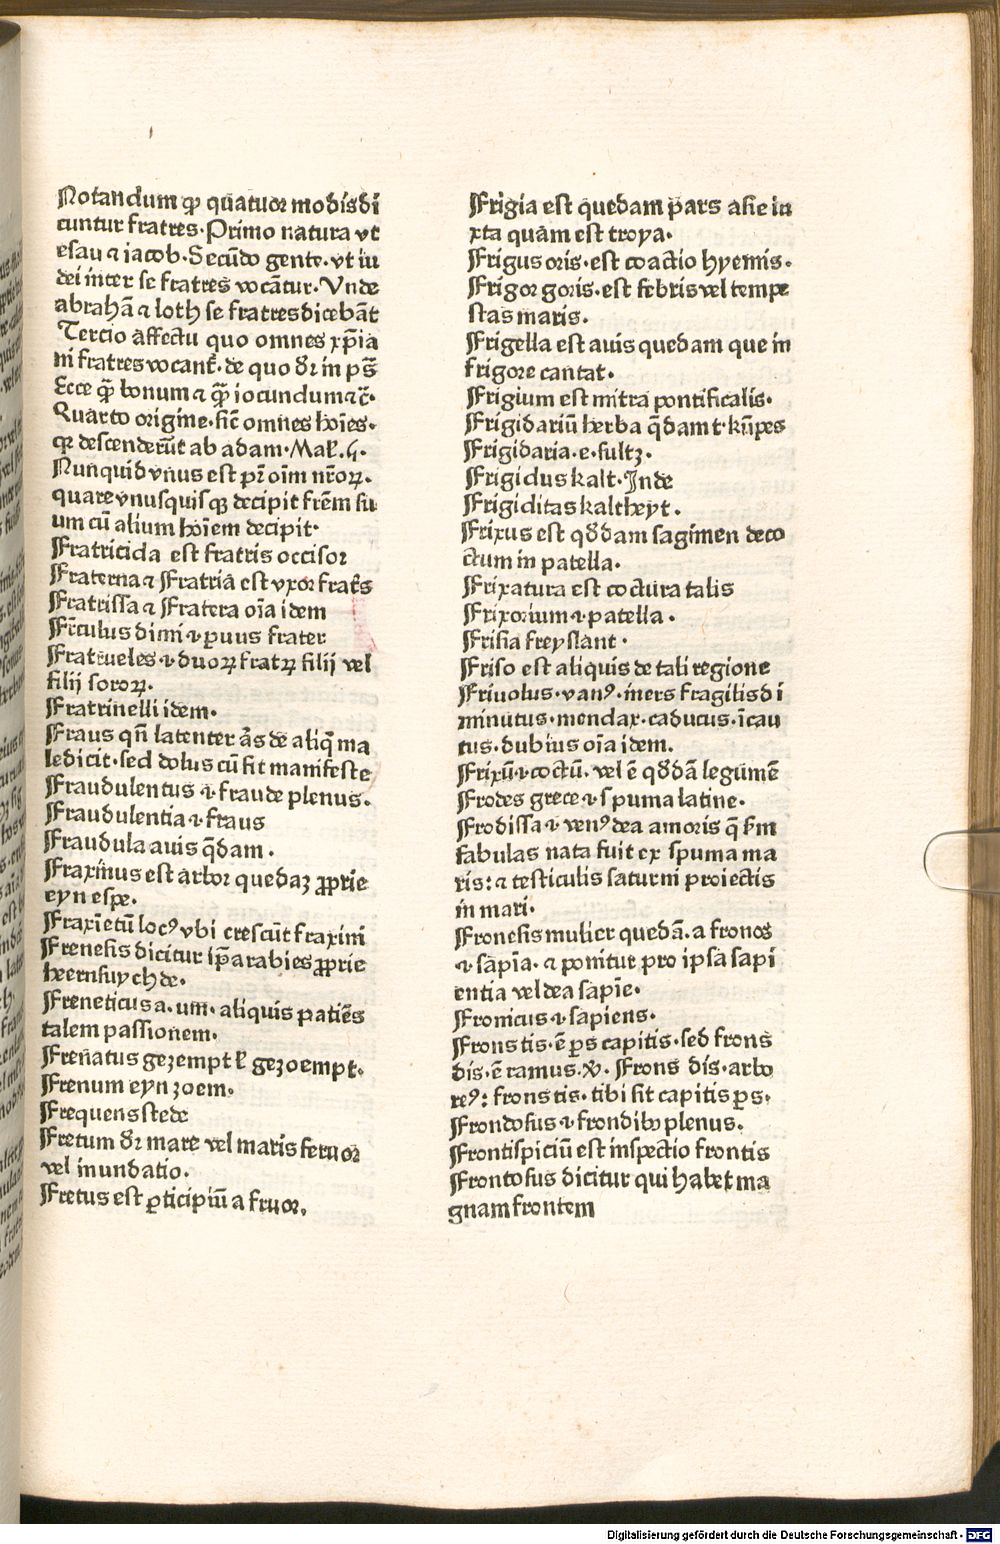 Notandum ꝙ quatuor modis di
cuntur fratres· Primo natura vt
esau ⁊ iacob· Secūdo gente· vt iu
dei inter se fratres vocātur· Vnde
abrahā ⁊ loth se fratres dicebāt
Tercio affectu quo omnes xp̄ia
ni fratres vocant᷑· de quo dr̄ in ps̄
Ecce q̄ꝫ bonum ⁊ q̄ꝫ iocundum ⁊c̄·
Quarto origine· sic̄ omnes hoīes·
qꝛ descenderūt ab adam· Mal̄·
Nunquid vnus est pr̄ oīm nr̄oꝝ·
quare vnusquisqꝫ decipit frēm su
um cū alium hoīem decipit·
Fratricida est fratris occisor
Fraterna ⁊ Fratria est vxor frat̄s
Fratrissa ⁊ Fratera oīa idem
Fr̄culus dimi ·i· ꝑuus frater
Fratrueles ·i· duoꝝ fratꝝ filij vel
filij sororꝝ·
Fratrinelli idem·
Fraus qn̄ latenter ās de aliq̄ ma
le dicit· sed dolus cū fit manifeste
Fraudulentus ·i· fraude plenus·
Fraudulentia ·i· fraus
Fraudula auis q̄dam·
Fraxinus est arbor quedaꝫ ꝓprie
eyn espe·
Fraxīetū locꝰ vbi crescūt fraxini
Frenesis dicitur ip̄a rabies ꝓprie
heernsuychde·
Freneticus a· um· aliquis patiēs
talem passionem·
Frenatus gezempt ł gezoempt·
Frenum eyn zoem·
Frequens stede
Fretum dr̄ mare vel maris feruor
vel inundatio·
Fretus est ꝑticipiū a fruor·
Frigia est quedam pars asie iu
xta quam est troya·
Frigus oris· est coactio hyemis·
Frigor goris· est febris vel tempe
stas maris·
Frigella est auis quedam que in
frigore cantat·
Frigium est mitra pontificalis·
Frigidariū herba q̄dam
Frigidaria· e·
Frigidus kalt· Inde
Frigiditas kaltheyt·
Frixus est qd̄dam sagimen deco
ctum in patella·
Frixatura est coctura talis
Frixorium ·i· patella·
Frisia freyslant·
Friso est aliquis de tali regione
Friuolus· vanꝰ· iners fragilis di
minutus· mendax· caducus· īcau
tus· dubius oīa idem·
Frixū ·i· coctū· vel ē qd̄dā legumē
Frodes grece ·i· spuma latine·
Frodissa ·i· venꝰ dea amoris q̄ scd̄m
fabulas nata fuit ex spuma ma
ris: ⁊ testiculis saturni proiectis
in mari·
Fronesis mulier quedā· a fronos
·i· sapīa· ⁊ ponitur pro ipsa sapi
entia vel dea sapīe·
Fronicus ·i· sapiens·
Frons tis· ē ꝑs capitis· sed frons
dis· ē ramus· Frons dis· arbo
reꝰ: frons tis· tibi sit capitis ꝑs·
Frondosus ·i· frondibꝰ plenus·
Frontispiciū est inspectio frontis
Frontosus dicitur qui habet ma
gnam frontem
Digitalisierung gefördert durch die Deutsche Forschungsgemeinschaft - DFG